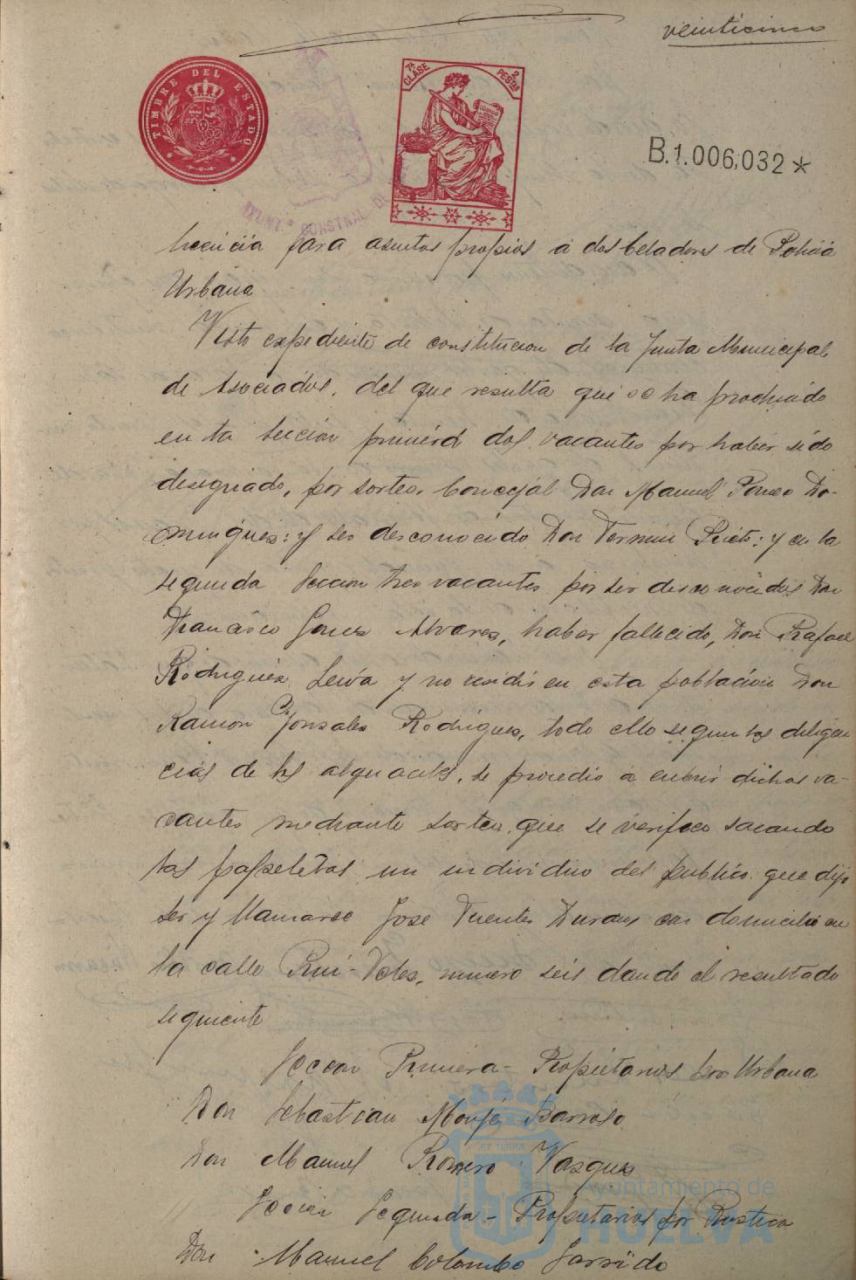 veinticinco
TIMBRE DEL ESTADO
7ª CLASE 2 PESTAS
B.1.006,032*
AYUNTº CONSTNAL DE
licencia para asuntos propios a dos beladores de Policia
Urbana
Visto expediente de constitucion de la Junta Municipal
de Asociados, del que resulta que se ha producido
en la seccion primera dos vacantes por haber sido
designado, por sorteo Concejal Don Manuel Ponce Do-
minguez: y ser desconocido Don Fermin Prieto: y en la
segunda Seccion tres vacantes por ser desconocidos Don
Francisco Gomez Alvares, haber fallecido, Don Rafael
Rodriguez Leiva y no residir en esta poblacion Don
Ramon Gonzales Rodriguez, todo ello segun las diligen
cias de los alguaciles, se procedio a cubrir dichas va-
cantes mediante sorteo, que se verifico sacando
las papeletas un individuo del publico que dijo
ser y llamarse Jose Fuentes Duran con domicilio en
la calle Rui-Veles, numero seis dando el resultado
siguiente
Seccion Primera - Propietarios por Urbana
Don Sebastian Barroso
Don Manuel Romero Vasques
Seccion Segunda - Propietarios por Rustica
Don Manuel Colombo Garrido
Ayuntamiento de
HUELVA